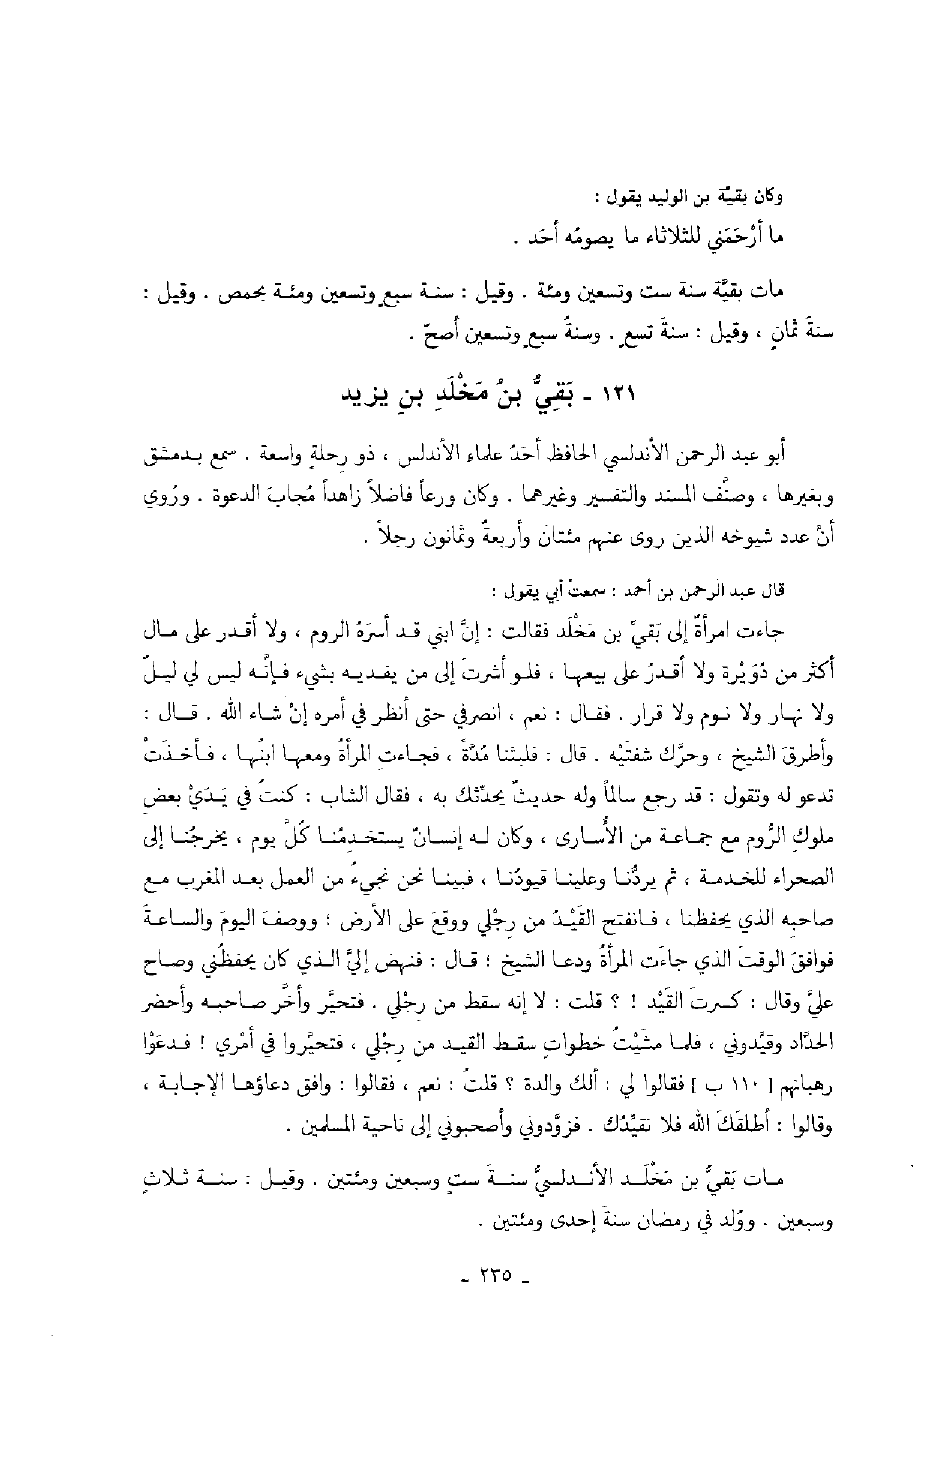 وكان بقيّة بن الوليد يقول :
ما أَرْحَمَني للثلاثاء ما يصومُه أحَد .
مات بقيَّة سنة ست وتسعين ومئة . وقيل : سنة سبعٍ وتسعين ومئة بحمص . وقيل :
سنةَ ثمانٍ ، وقيل : سنةَ تسعٍ . وسنةُ سبعٍ وتسعين أصحّ .
١٢١ - بَقيُّ بنُ مَخْلَدِ بنِ يزيد
أبو عبد الرحمن الأندلسي الحافظ أحَدُ علماء الأندلس ، ذو رحلةٍ واسعة . سمع بدمشق
وبغيرها ، وصنَّف المسند والتفسير وغيرهما . وكان ورعاً فاضلاً زاهداً مُجابَ الدعوة . ورُوي
أنَّ عدد شيوخه الذين روى عنهم مئتان وأربعةٌ وثمانون رجلاً .
قال عبد الرحمن بن أحمد : سمعتُ أبي يقول :
جاءت امرأةٌ إلى بَقيِّ بن مَخْلَد فقالت : إنَّ ابني قد أسرَهُ الروم ، ولا أقدر على مال
أكثر من دُوَيْرة ولا أقدرُ على بيعها ، فلو أشرتَ إلى من يفديه بشيء فإنَّه ليس لي ليلٌ
ولا نهار ولا نوم ولا قرار . فقال : نعم ، انصرفي حتى أنظر في أمره إنْ شاء الله . قال :
وأطرقَ الشيخ ، وحرَّك شفتَيْه . قال : فلبثنا مُدَّةً ، فجاءتِ المرأةُ ومعها ابنُها ، فأخذَتْ
تدعو له وتقول : قد رجع سالماً وله حديثٌ يحدِّثك به ، فقال الشاب : كنتُ في يَدَيْ بعضِ
ملوكِ الرُّوم مع جماعة من الأُسارى ، وكان له إنسانٌ يستخدمُنا كُلَّ يوم ، يخرجُنا إلى
الصحراء للخدمة ، ثم يردُّنا وعلينا قيودُنا ، فبينا نحن نجيءُ من العمل بعد المغرب مع
صاحبه الذي يحفظنا ، فانفتح القَيْدُ من رجْلي ووقعَ على الأرض ؛ ووصفَ اليومَ والساعةَ
فوافقَ الوقتَ الذي جاءَت المرأةُ ودعا الشيخ ؛ قال : فنهض إليَّ الذي كان يحفظُني وصاح
عليَّ وقال : كسرتَ القَيْد ! ؟ قلت : لا إنه سقط من رجْلي . فتحيَّر وأخَّر صاحبه وأحضر
الحدَّاد وقيَّدوني ، فلما مشَيْتُ خطواتٍ سقط القيد من رجْلي ، فتحيَّروا في أمْري ! فدعَوْا
رهبانهم [ ١١٠ ب ] فقالوا لي : ألك والدة ؟ قلتُ : نعم ، فقالوا : وافق دعاؤها الإجابة ،
وقالوا : أطلقَكَ الله فلا نقيِّدك . فزوَّدوني وأصحبوني إلى ناحية المسلمين .
مات بَقيُّ بن مَخْلَد الأندلسيُّ سنةَ ستٍ وسبعين ومئتين . وقيل : سنة ثلاثٍ
وسبعين . ووُلد في رمضان سنةَ إحدى ومئتين .
- ٢٣٥ -